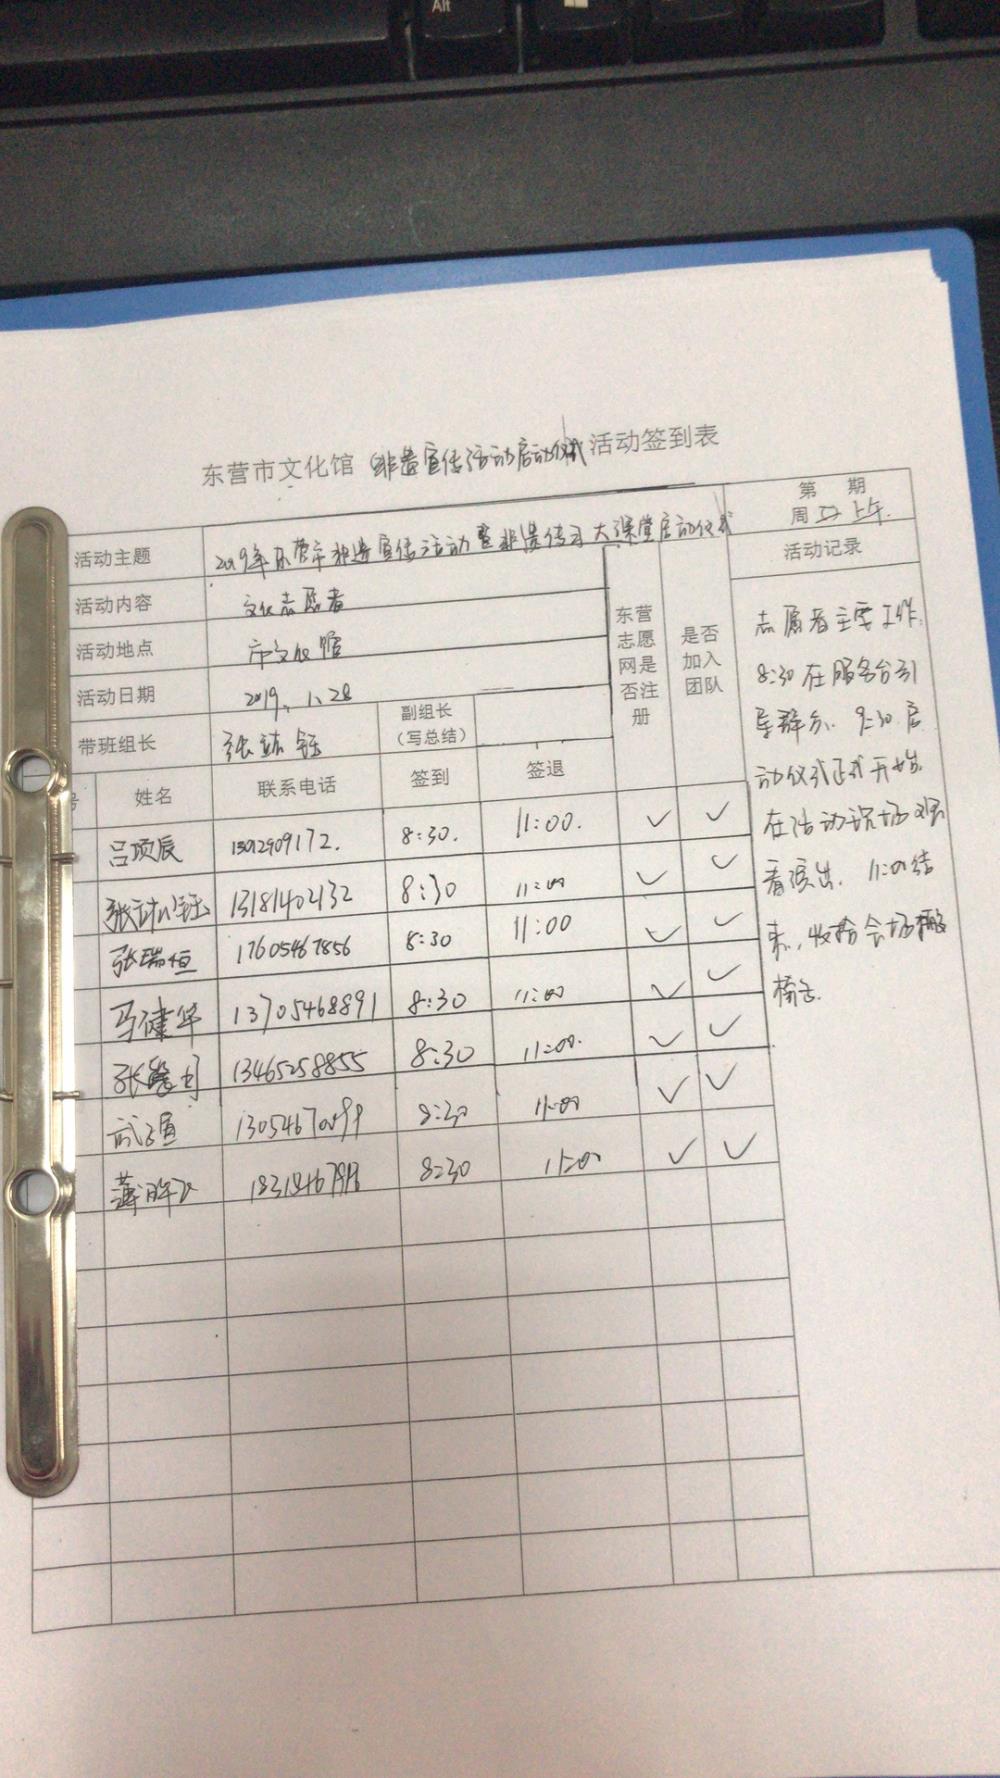 Alt
东营市文化馆 非遗宣传活动启动仪式 活动签到表
第 期
周 上午
活动主题 2019年东营市非遗宣传活动暨非遗传习大课堂启动仪式
活动记录
活动内容 文化志愿者
活动地点 市文化馆
活动日期 2019、1、28
带班组长 张 钰
副组长
(写总结)
东营
志愿
网是
否注
册
是否
加入
团队
姓名 联系电话 签到 签退
吕顼辰 8:30. 11:00. ✓ ✓
13181402132 8:30 11:00 ✓ ✓
张瑞恒 17605467856 8:30 11:00 ✓ ✓
马健华 13705468891 8:30 11:00 ✓ ✓
张 13465258855 8:30 11:00. ✓ ✓
武 8:30 11:00 ✓ ✓
薄 8:30 11:00 ✓ ✓
志愿者主要工作:
8:30 在服务台引
导群众. 9:30 启
动仪式正式开始.
在活动现场观
看演出. 11:00结
束, 收拾会场搬
椅子.